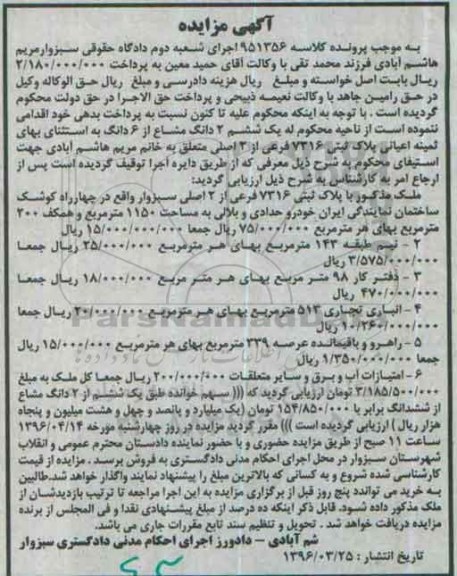 آگهی مزایده
به موجب پرونده کلاسه ۹۵۱۳۵۶ اجرای شعبه دوم دادگاه حقوقی سبزوارمریم
هاشم آبادی فرزند محمد تقی با وکالت آقای حمید معین به پرداخت ۲/۱۸۰/۰۰۰/۰۰۰
ریال بابت اصل خواسته و مبلغ ریال هزینه دادرسی و مبلغ ریال حق الوکاله وکیل
در حق رامین جاهد با وکالت نعیمه ذبیحی و پرداخت حق الاجرا در حق دولت محکوم
گردیده است . با توجه به اینکه محکوم علیه تا کنون نسبت به پرداخت بدهی خود اقدامی
ننموده است از ناحیه محکوم له یک ششم ۲ دانگ مشاع از ۶ دانگ به استثنای بهای
ثمینه اعیانی پلاک ثبتی ۷۳۱۶ فرعی از ۳ اصلی متعلق به خانم مریم هاشم آبادی جهت
استیفای محکوم به شرح ذیل معرفی که از طریق دایره اجرا توقیف گردیده است پس از
ارجاع امر به کارشناس به شرح ذیل ارزیابی گردید:
ملک مذکور با پلاک ثبتی ۷۳۱۶ فرعی از ۲ اصلی سبزوار واقع در چهارراه کوشک
ساختمان نمایندگی ایران خودرو حدادی و بلالی به مساحت ۱۱۵۰ مترمربع و همکف ۲۰۰
مترمربع بهای هر مترمربع ۷۵/۰۰۰/۰۰۰ ریال جمعا ۱۵/۰۰۰/۰۰۰/۰۰۰ ریال
۲ - نیم طبقه ۱۴۳ مترمربع بهای هر مترمربع ۲۵/۰۰۰/۰۰۰ ریال جمعا
۳/۵۷۵/۰۰۰/۰۰۰ ریال
۳ - دفتر کار ۹۸ متر مربع بهای هر متر مربع ۱۸/۰۰۰/۰۰۰ ریال جمعا
۴۷۰/۰۰۰/۰۰۰ ریال
۴ - انباری تجاری ۵۱۳ مترمربع بهای هر مترمربع ۲۰/۰۰۰/۰۰۰ ریال جمعا
۱۰/۲۶۰/۰۰۰/۰۰۰ ریال
۵ - راهرو و باقیمانده عرصه ۳۳۹ مترمربع بهای هر مترمربع ۱۵/۰۰۰/۰۰۰ ریال
جمعا ۱/۳۵۰/۰۰۰/۰۰۰ ریال
۶ - امتیازات آب و برق و سایر متعلقات ۲۰۰/۰۰۰/۰۰۰ ریال جمعا کل ملک به مبلغ
۳/۱۸۵/۵۰۰/۰۰۰ تومان ارزیابی گردید که ((( سهم خوانده طبق یک ششم از ۲ دانگ مشاع
از ششدانگ برابر با ۱۵۴/۸۵۰/۰۰۰ تومان (یک میلیارد و پانصد و چهل و هشت میلیون و پنجاه
هزار ریال ) ارزیابی گردیده است ))) مقرر گردید مزایده در روز چهارشنبه مورخه ۱۳۹۶/۰۴/۱۴
ساعت ۱۱ صبح از طریق مزایده حضوری و با حضور نماینده دادستان محترم عمومی و انقلاب
شهرستان سبزوار در محل اجرای احکام مدنی دادگستری به فروش برسد . مزایده از قیمت
کارشناسی شده شروع و به کسانی که بالاترین مبلغ را پیشنهاد نمایند واگذار خواهد شد.طالبین
به خرید می توانند پنج روز قبل از برگزاری مزایده به این اجرا مراجعه تا ترتیب بازدیدشان از
ملک مذکور داده شود. قابل ذکر اینکه ده درصد از مبلغ پیشنهادی نقدا و فی المجلس از برنده
مزایده دریافت خواهد شد . تحویل و تنظیم سند تابع مقررات جاری می باشد.
شم آبادی - دادورز اجرای احکام مدنی دادگستری سبزوار
تاریخ انتشار : ۱۳۹۶/۰۳/۲۵